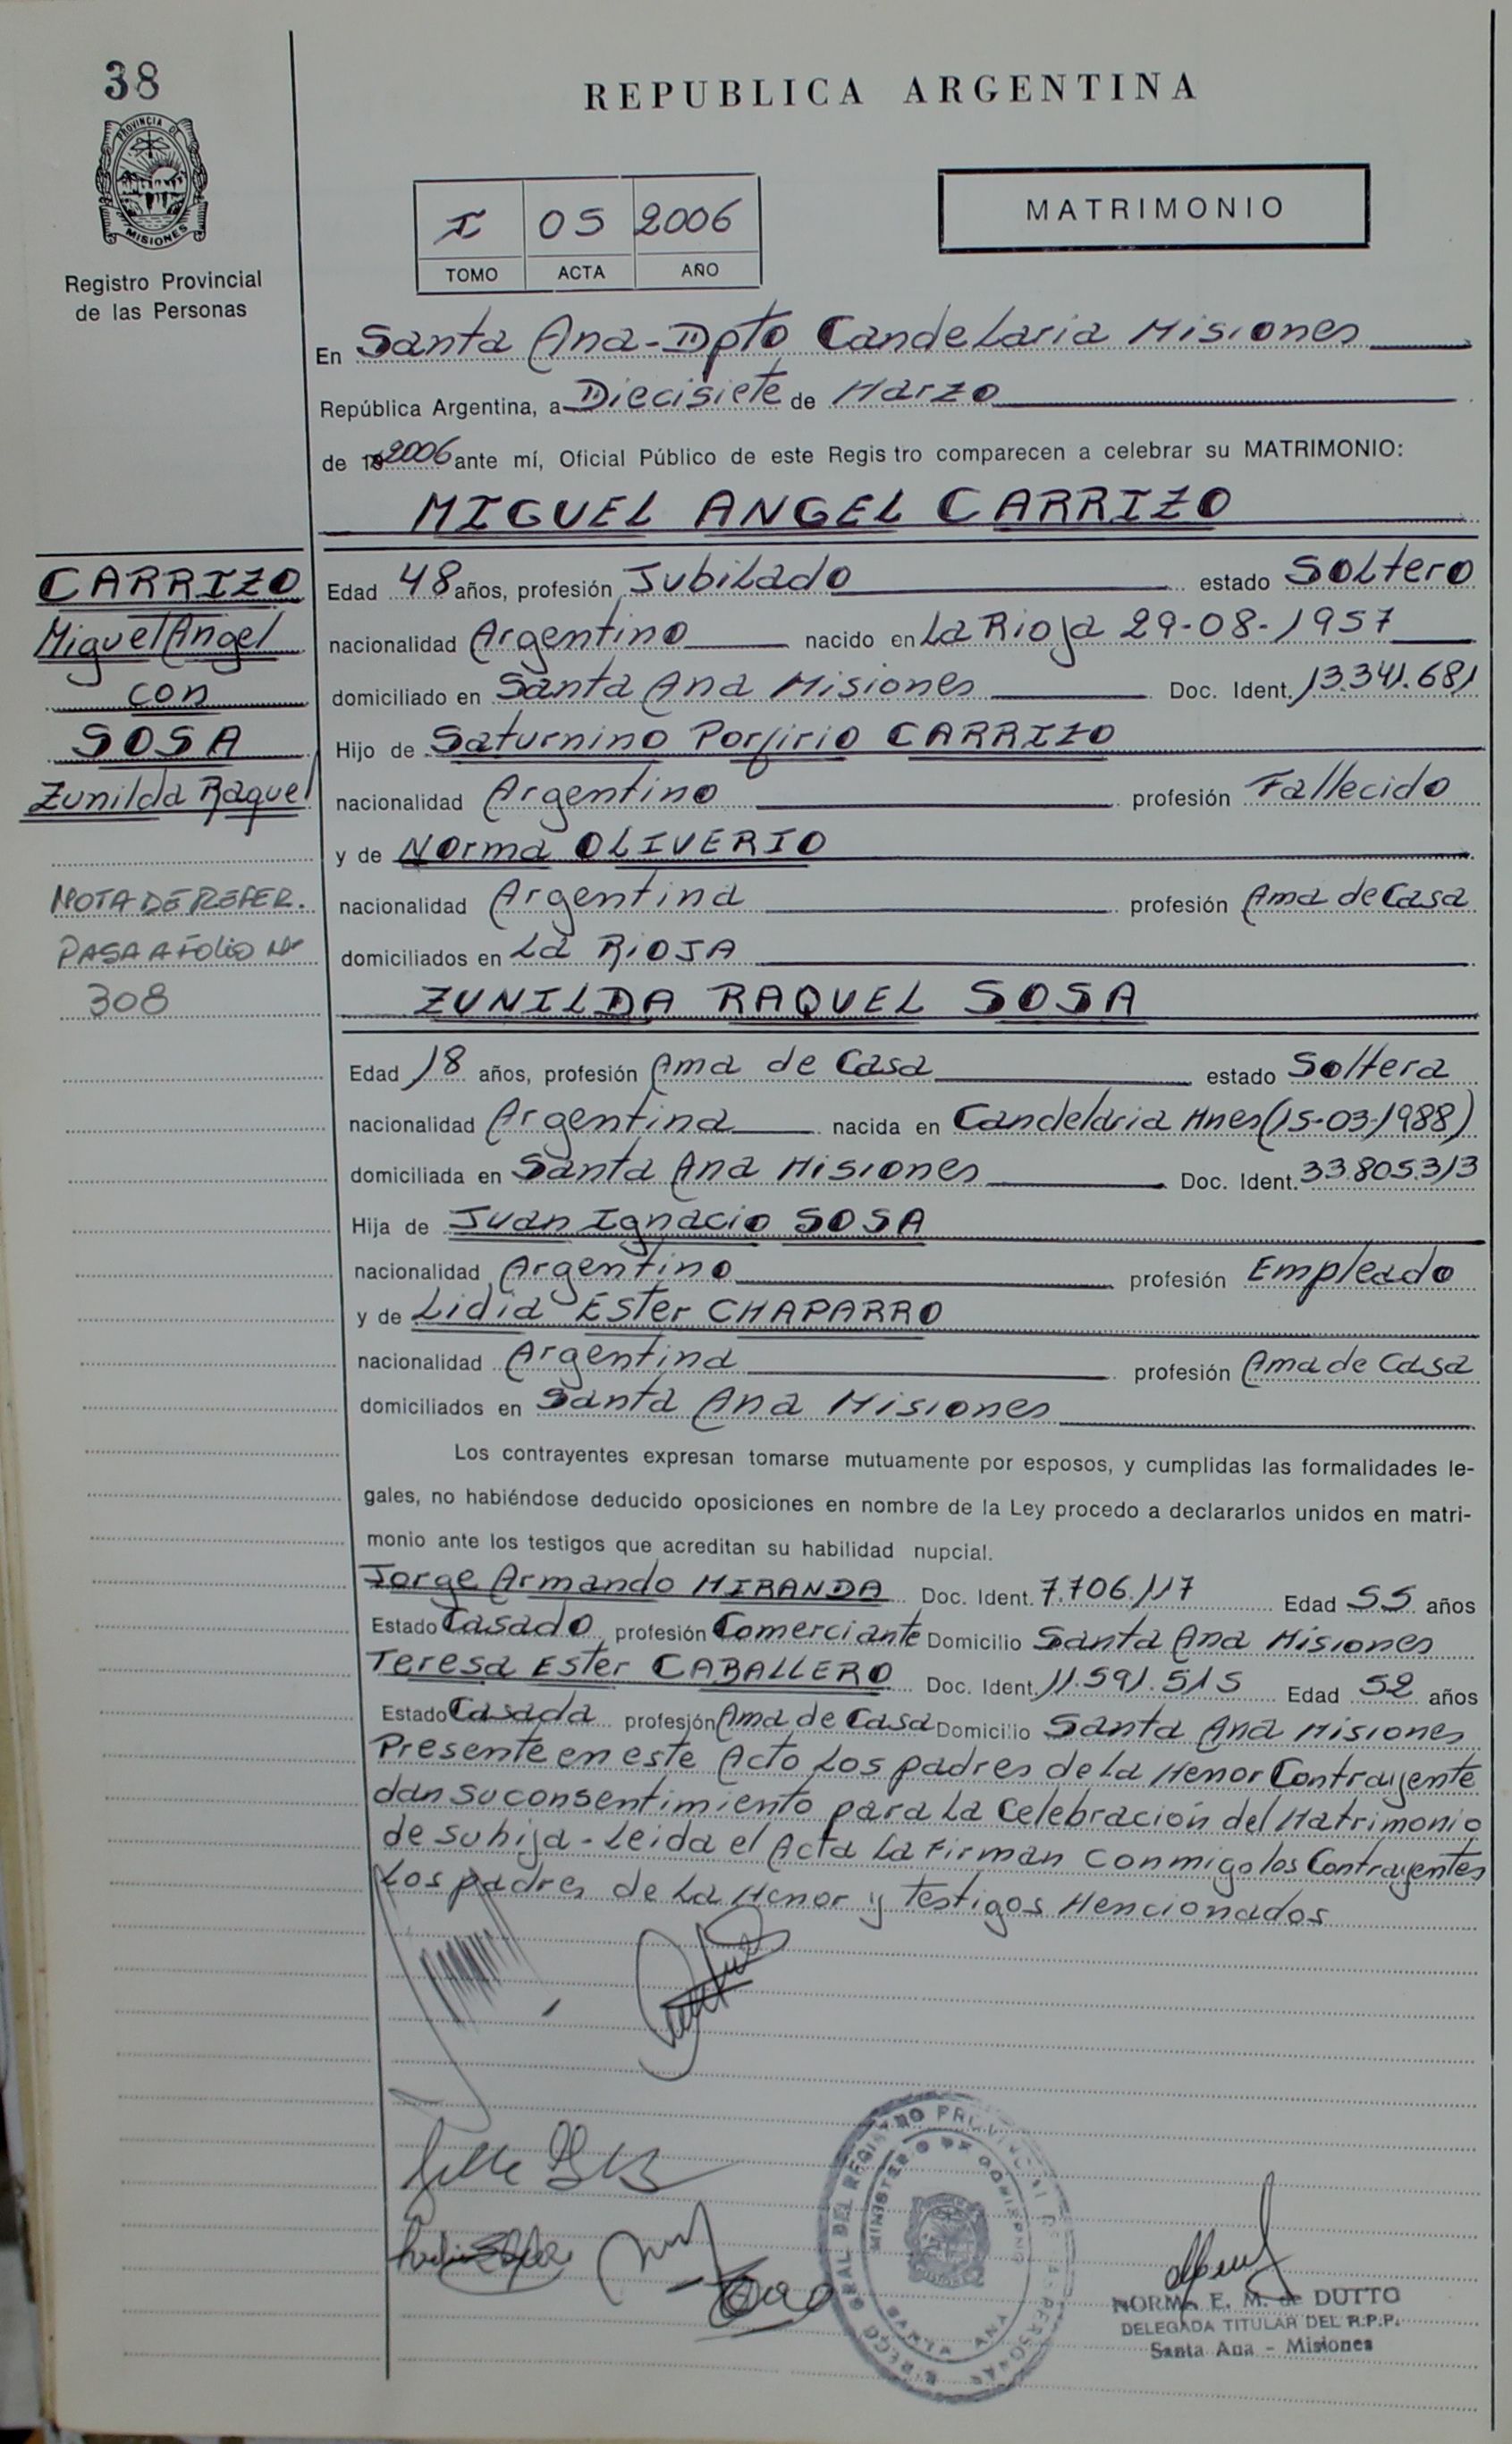 38
REPUBLICA ARGENTINA
PROVINCIA DE
MISIONES
Registro Provincial
de las Personas
I 05 2006
TOMO ACTA AÑO
MATRIMONIO
En Santa Ana-Dpto Candelaria Misiones
República Argentina, a Diecisiete de Marzo
de 2006 ante mí, Oficial Público de este Regis tro comparecen a celebrar su MATRIMONIO:
MIGUEL ANGEL CARRIZO
CARRIZO
Miguel Angel
con
SOSA
Zunilda Raquel
NOTA DE REFER.
PASA A FOLIO Nº
308
Edad 48 años, profesión Jubilado estado Soltero
nacionalidad Argentino nacido en La Rioja 29-08-1957
domiciliado en Santa Ana Misiones Doc. Ident. 13.341.681
Hijo de Saturnino Porfirio CARRIZO
nacionalidad Argentino profesión Fallecido
y de Norma OLIVERIO
nacionalidad Argentina profesión Ama de Casa
domiciliados en La RIOJA
ZUNILDA RAQUEL SOSA
Edad 18 años, profesión Ama de Casa estado Soltera
nacionalidad Argentina nacida en Candelaria Mnes (15-03-1988)
domiciliada en Santa Ana Misiones Doc. Ident. 33.805.313
Hija de Juan Ignacio SOSA
nacionalidad Argentino profesión Empleado
y de Lidia Ester CHAPARRO
nacionalidad Argentina profesión Ama de Casa
domiciliados en Santa Ana Misiones
Los contrayentes expresan tomarse mutuamente por esposos, y cumplidas las formalidades le-
gales, no habiéndose deducido oposiciones en nombre de la Ley procedo a declararlos unidos en matri-
monio ante los testigos que acreditan su habilidad nupcial.
Jorge Armando MIRANDA Doc. Ident. 7.706.117 Edad 55 años
Estado Casado profesión Comerciante Domicilio Santa Ana Misiones
Teresa Ester CABALLERO Doc. Ident. 11.591.515 Edad 52 años
Estado Casada profesión Ama de Casa Domicilio Santa Ana Misiones
Presente en este Acto Los padres de la Menor Contrayente
dan su consentimiento para La Celebración del Matrimonio
de su hija - Leida el Acta La Firman conmigo los Contrayentes
Los padres de La Menor y Testigos Mencionados
MINISTERIO DE GOBIERNO
SANTA ANA
NORMA E. M. de DUTTO
DELEGADA TITULAR DEL R.P.P.
Santa Ana - Misiones